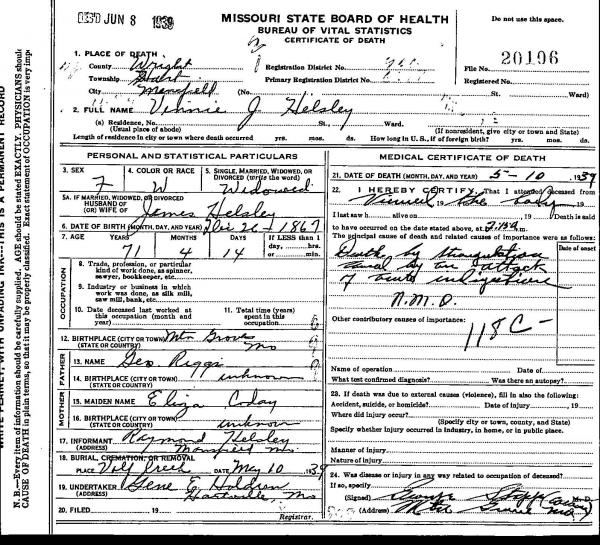 REC'D JUN 8 1939
MISSOURI STATE BOARD OF HEALTH
BUREAU OF VITAL STATISTICS
CERTIFICATE OF DEATH
Do not use this space.
1. PLACE OF DEATH
County Wright
Registration District No.
File No. 20196
Township Hart
Primary Registration District No.
Registered No.
City Mansfield (No. St. Ward)
2. FULL NAME Vennie J Helsley
(a) Residence, No. St., Ward.
(Usual place of abode) (If nonresident, give city or town and State)
Length of residence in city or town where death occurred yrs. mos. ds. How long in U. S., if of foreign birth? yrs. mos. ds.
PERSONAL AND STATISTICAL PARTICULARS
3. SEX F
4. COLOR OR RACE W
5. SINGLE, MARRIED, WIDOWED, OR DIVORCED (write the word) Widowed
5A. IF MARRIED, WIDOWED, OR DIVORCED
HUSBAND OF (OR) WIFE OF James Helsley
6. DATE OF BIRTH (MONTH, DAY, AND YEAR) Dec 26 - 1867
7. AGE YEARS 71 MONTHS 4 DAYS 14 If LESS than 1 day, hrs. or min.
OCCUPATION
8. Trade, profession, or particular kind of work done, as spinner, sawyer, bookkeeper, etc.
9. Industry or business in which work was done, as silk mill, saw mill, bank, etc.
10. Date deceased last worked at this occupation (month and year)
11. Total time (years) spent in this occupation
12. BIRTHPLACE (CITY OR TOWN) Mtn Grove
(STATE OR COUNTRY) Mo
FATHER
13. NAME Geo. Riggs
14. BIRTHPLACE (CITY OR TOWN) unknown
(STATE OR COUNTRY)
MOTHER
15. MAIDEN NAME Eliza Coday
16. BIRTHPLACE (CITY OR TOWN) unknown
(STATE OR COUNTRY)
17. INFORMANT Raymond Helsley
(ADDRESS) Mansfield Mo.
18. BURIAL, CREMATION, OR REMOVAL
PLACE Wolf Creek DATE May 10 1939
19. UNDERTAKER Gene E Holdren
(ADDRESS) Hartville, Mo
20. FILED 19
Registrar.
MEDICAL CERTIFICATE OF DEATH
21. DATE OF DEATH (MONTH, DAY, AND YEAR) 5-10 1939
22. I HEREBY CERTIFY, That I attended deceased from
Viewed the body 19
I last saw h alive on 19 Death is said
to have occurred on the date stated above, at m.
The principal cause of death and related causes of importance were as follows:
Date of onset
Death by
by an attack
of acute
N.M.D.
Other contributory causes of importance:
118C-
Name of operation Date of
What test confirmed diagnosis? Was there an autopsy?
23. If death was due to external causes (violence), fill in also the following:
Accident, suicide, or homicide? Date of injury 19
Where did injury occur?
(Specify city or town, county, and State)
Specify whether injury occurred in industry, in home, or in public place.
Manner of injury
Nature of injury
24. Was disease or injury in any way related to occupation of deceased?
If so, specify
(Signed)
(Address) Mtn Grove Mo.
WRITE PLAINLY, WITH UNFADING INK---THIS IS A PERMANENT RECORD
N.—Every item of information should be carefully supplied. AGE should be stated EXACTLY. PHYSICIANS should
CAUSE OF DEATH in plain terms, so that it may be properly classified. Exact statement of OCCUPATION is very imp